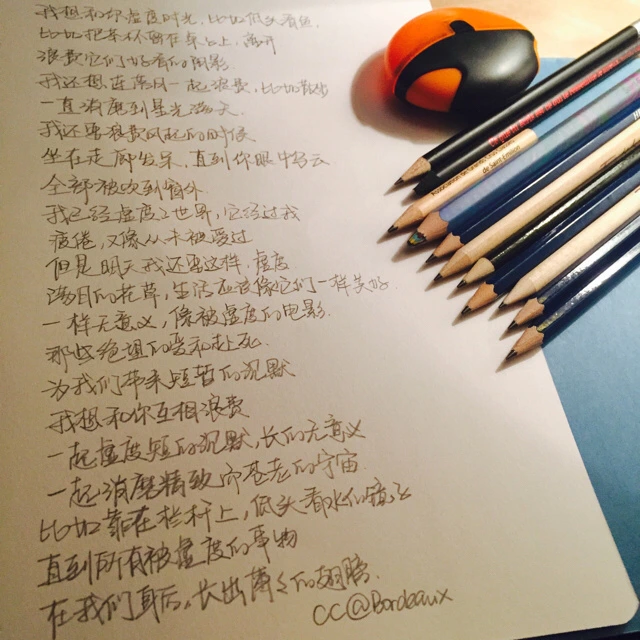 我想和你虚度时光,比如低头看鱼
比如把茶杯留在桌上,离开
浪费它们好看的阴影
我还想连落日一起浪费,比如散步
一直消磨到星光满天
我还要浪费风起的时候
坐在走廊发呆,直到你眼中乌云
全部被吹到窗外
我已经虚度了世界,它经过我
疲倦,又像从未被爱过
但是明天我还要这样,虚度
满目的花草,生活应该像它们一样美好
一样无意义,像被虚度的电影
那些绝望的爱和赴死
为我们带来短暂的沉默
我想和你互相浪费
一起虚度短的沉默,长的无意义
一起消磨精致而苍老的宇宙
比如靠在栏杆上,低头看水的镜子
直到所有被虚度的事物
在我们身后,长出薄薄的翅膀
CC@Bordeaux
de Saint-Emilion